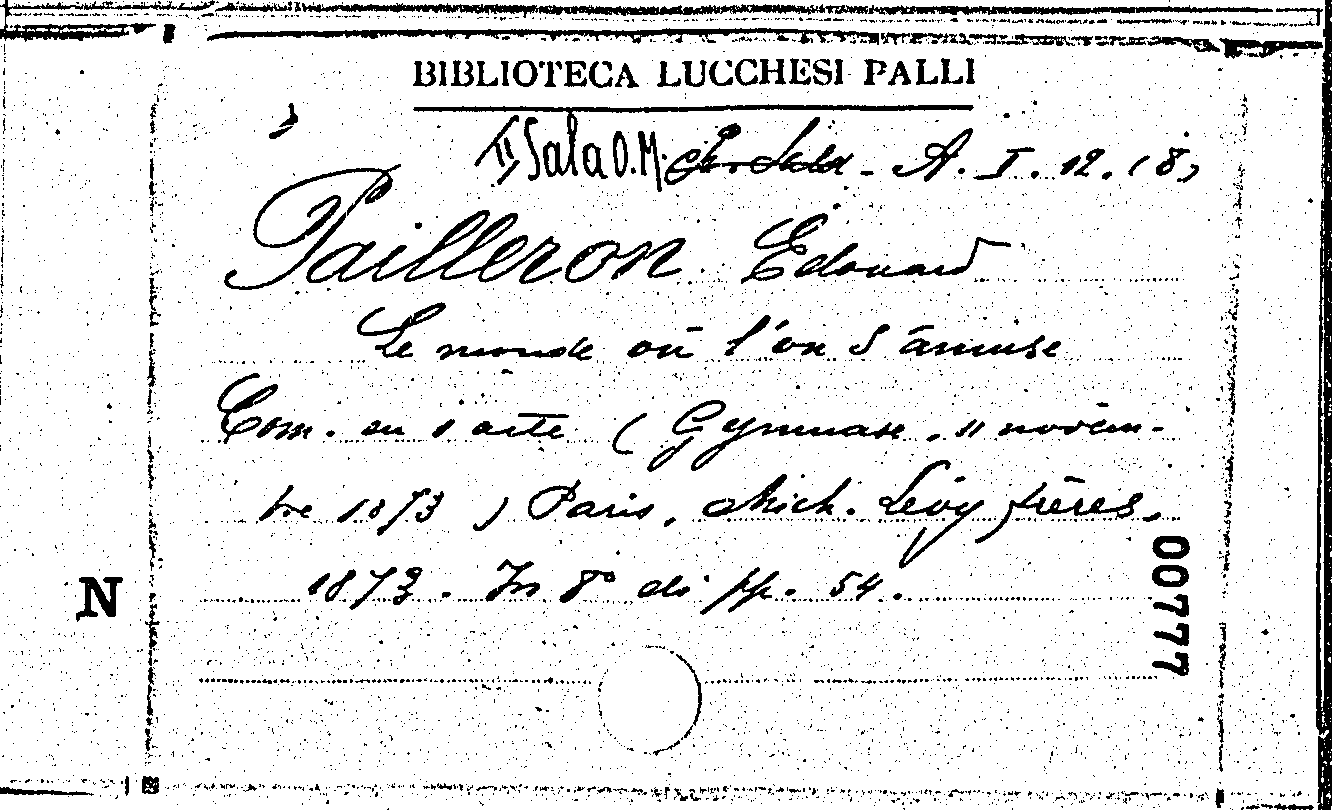 BIBLIOTECA LUCCHESI PALLI
II Sala O.M. - A. I. 12. (8)
Pailleron Edouard
Le monde où l'on s'amuse
Com. en 1 acte ( Gymnase, 11 novem-
bre 1873 ) Paris, Mich. Lévy frères,
1873. In 8° di pp. 54.
N
00777